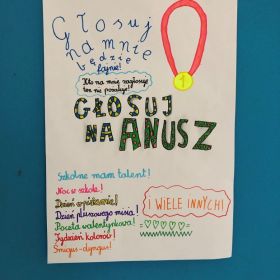 Głosuj
na mnie
będzie
fajnie!
Kto na mnie zagłosuje
ten nie pożałuje!
1
GŁOSUJ
NA ANUSZ
Szkolne mam talent!
Noc w szkole!
Dzień pluszowego misia!
Poczta walentynkowa!
Tydzień kolorów!
Śmigus-dyngus!
I WIELE INNYCH!